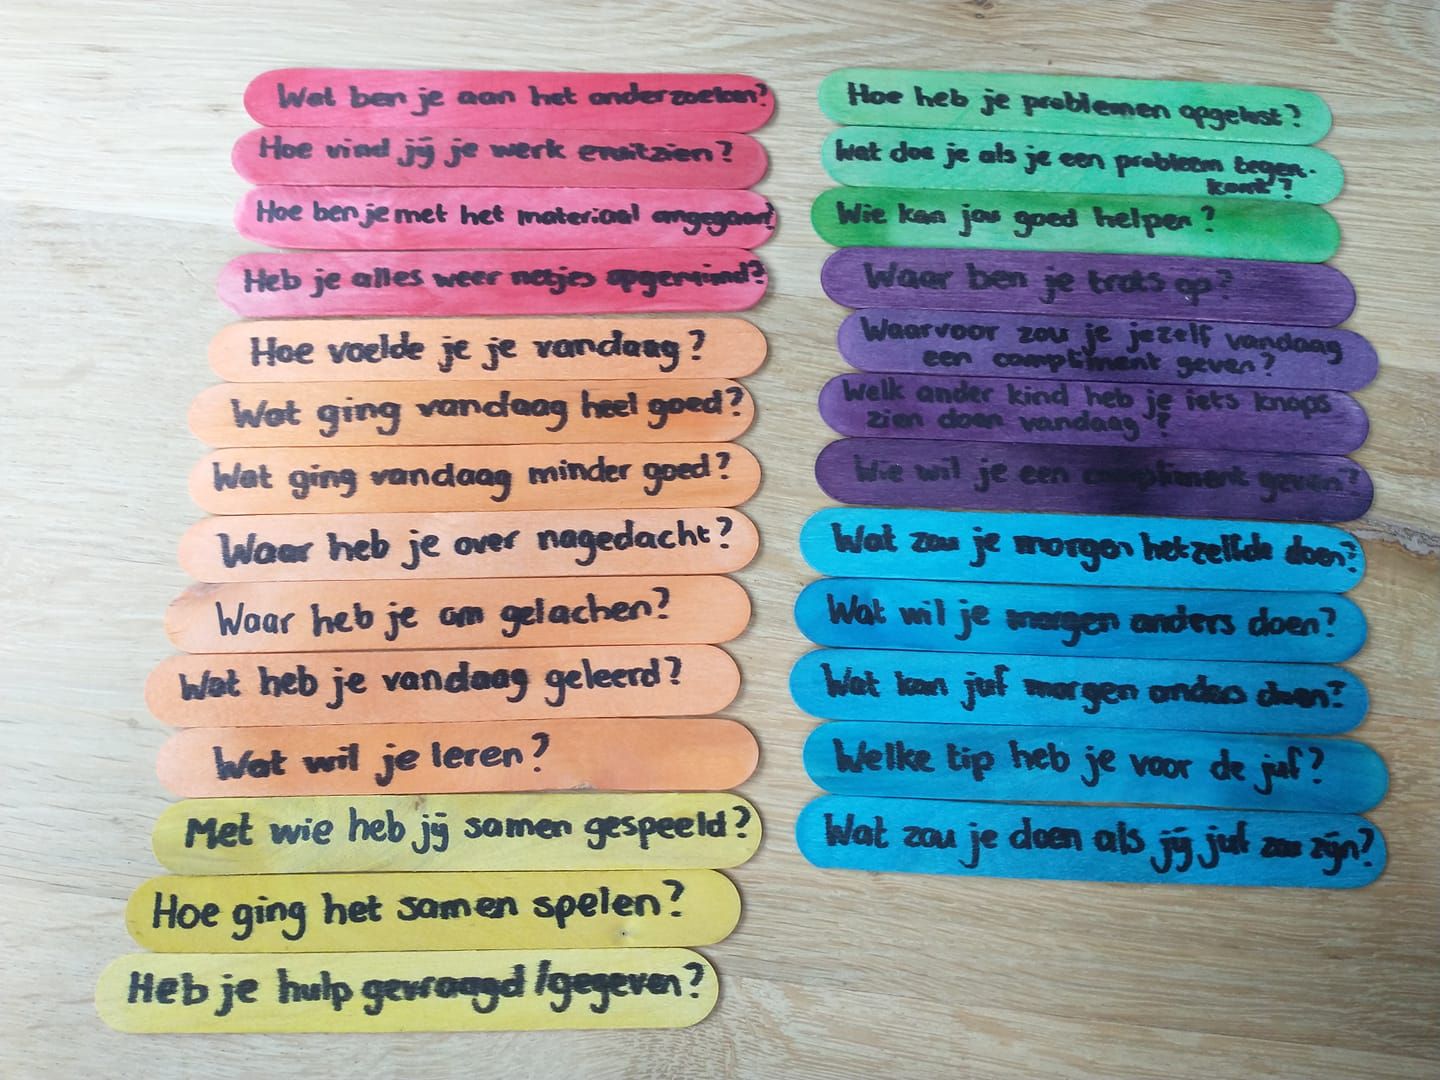 Wat ben je aan het onderzoeken?
Hoe vind jij je werk eruitzien?
Hoe ben je met het materiaal omgegaan?
Heb je alles weer netjes opgeruimd?
Hoe voelde je je vandaag?
Wat ging vandaag heel goed?
Wat ging vandaag minder goed?
Waar heb je over nagedacht?
Waar heb je om gelachen?
Wat heb je vandaag geleerd?
Wat wil je leren?
Met wie heb jij samen gespeeld?
Hoe ging het samen spelen?
Heb je hulp gevraagd/gegeven?
Hoe heb je problemen opgelost?
Wat doe je als je een probleem tegen-
komt?
Wie kan jou goed helpen?
Waar ben je trots op?
Waarvoor zou je jezelf vandaag
een compliment geven?
Welk ander kind heb je iets knaps
zien doen vandaag?
Wie wil je een compliment geven?
Wat zou je morgen hetzelfde doen?
Wat wil je morgen anders doen?
Wat kan juf morgen anders doen?
Welke tip heb je voor de juf?
Wat zou je doen als jij juf zou zijn?